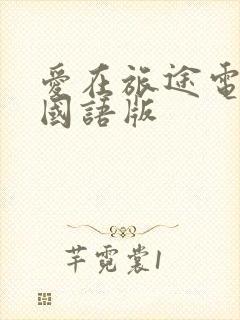 愛在旅途電
國語版
芊霓裳1